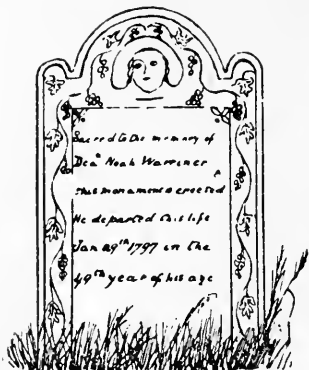 Sacred to the memory of
Deaⁿ Noah Warriner
this monument is erected
He departed this life
Jan 29th 1797 in the
49th year of his age